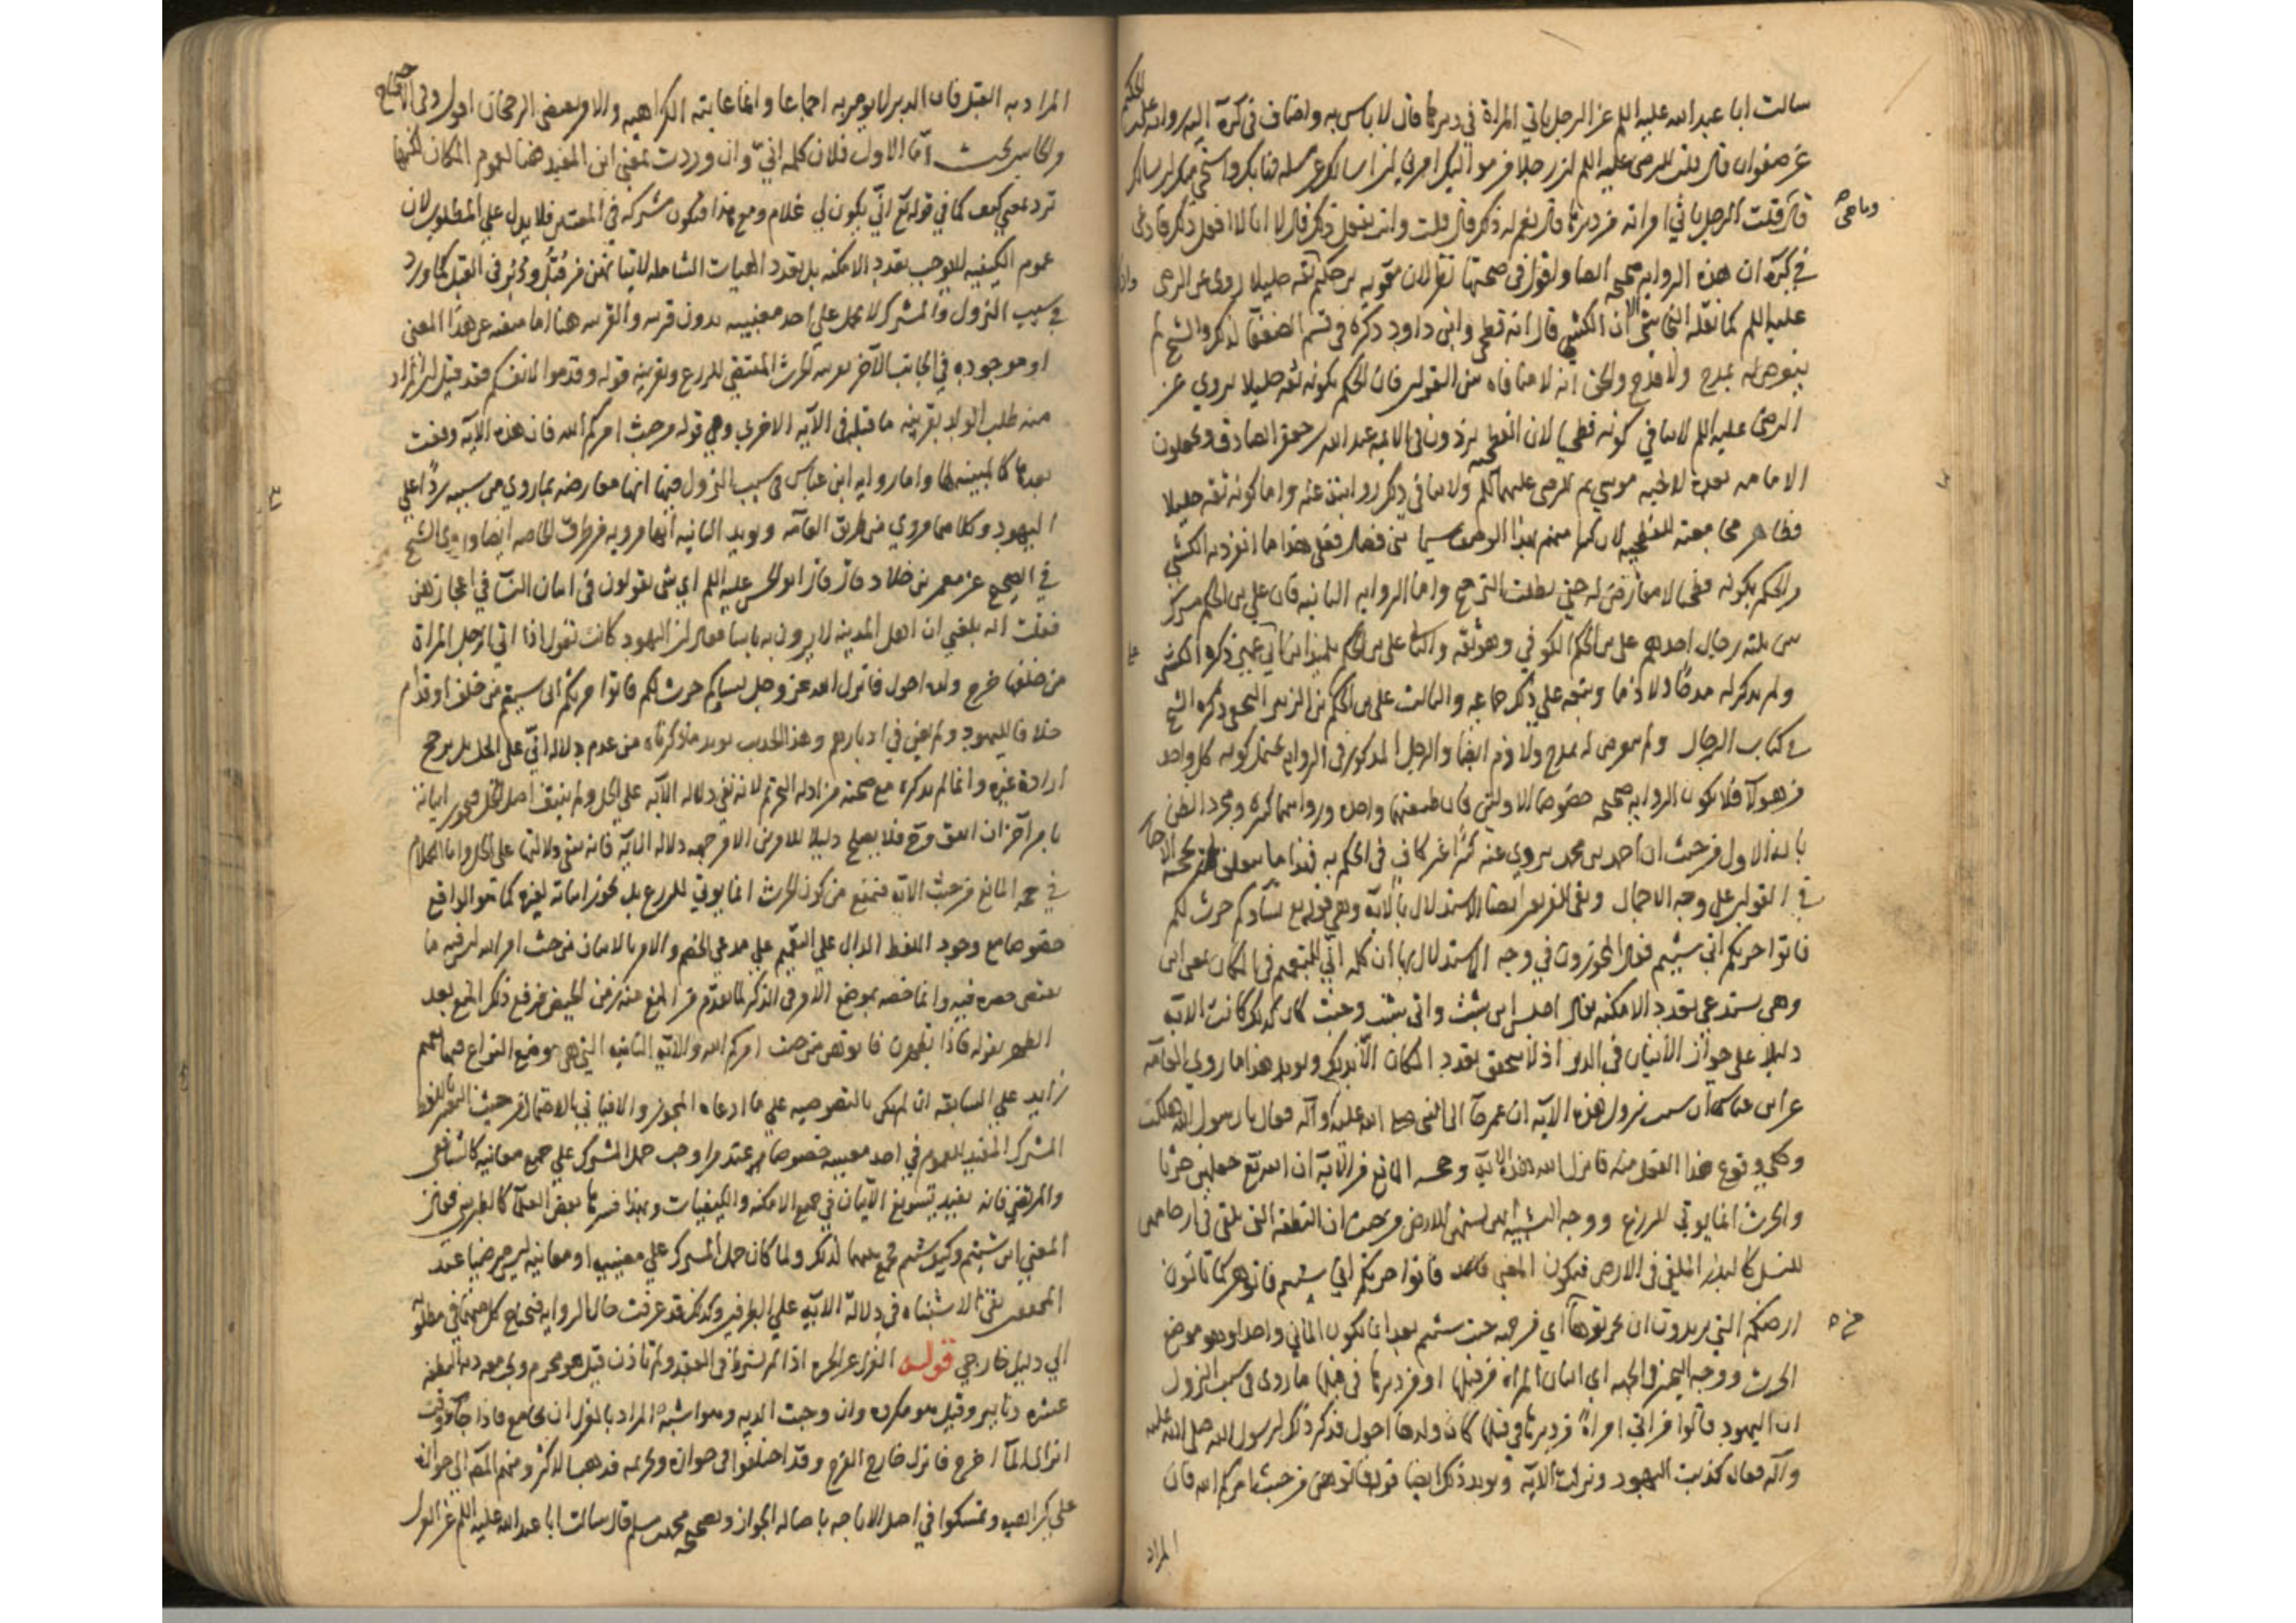 سالت ابا عبد الله عليه اللم عن الرجل ياتي المراة في دبرها قال لا باس به واضاف في كره اليه رواية علي بن الحكم
عن صفوان قال قلت للرضى عليه اللم ان رجلا من مواليك امرني ان اسالك عن مسله هابك واستحيى منك ان يسالك
قال وما هي قال قلت الرجل ياتي امراته من دبرها قال نعم له ذلك قال قلت وانت تفعل ذلك قال لا انا لا نفعل ذلك
في كره ان هذه الرواية صحيحه ايضا واقول في صحتها نظر لان معويه بن حكيم ثقه جليلا روى عن الرضى
عليه اللم كما نقله النجاشي الا ان الكشي قال انه فطحي وابن داود ذكره في قسم الضعفا لذلك والشيخ لم
يتعرض له بمدح ولا قدح والحق انه لا منافاه بين القولين فان الحكم بكونه ثقه جليلا يروي عن
الرضى عليه اللم لا ينافي كونه فطحيا لان الفطحيه يزيدون في الايمه عبد الله بن جعفر الصادق ويجعلون
الامامه بعده لاخيه موسى ثم للرضى عليهما اللم ولا ينافي ذلك روايته عنه واما كونه ثقه جليلا
فظاهر مجامعته للفطحيه لان كثيرا منهم بهذا الوصف سيما بني فضال فعلى هذا ما انفرد به الكشي
من الحكم بكونه فطحيا لا معارض له حتى يطلب الترجيح واما الروايه الثانيه فان علي بن الحكم مشترك
بين ثلثه رجال احدهم علي بن الحكم الكوفي وهو ثقه والثاني علي بن الحكم تلميذ ابن ابي عمير ذكره الكشي
ولم يذكر له مدحا ولا ذما وتبعه على ذلك جماعه والثالث علي بن الحكم بن الزبير النخعي ذكره الشيخ
في كتاب الرجال ولم يتعرض له بمدح ولا ذم ايضا والرجل المذكور في الروايه يحتمل كونه كل واحد
من هولآ فلا يكون الروايه صحيحه خصوصا الاولين فان طبقتهما واحده ورواتهما كثيره ومجرد الظن
بانه الاول من حيث ان احمد بن محمد يروي عنه كثيرا غير كاف في الحكم به فهذا ما يتعلق
في القولين على وجه الاجمال وبقى للفريقين ايضا الاستدلال بالايه وهي قوله تع نساوكم حرث لكم
فاتوا حرثكم انى شيتم فقال المجوزون في وجه الاستدلال بها ان كلمه انى للتعميم في المكان بمعنى اين
وهي يستدعي تعدد الامكنه يقال اجلس اين شيت وانى شيت وحيث كان كذلك كانت الايه
دليلا على جواز الاتيان في الدبر اذ لا يتحقق تعدد المكان الا بذلك ويويد هذا ما روي العامه
عن ابن عباس ان سبب نزول هذه الايه ان عمر جآ الى النبي صلى الله عليه وآله فقال يا رسول الله هلكت
وحكى وقوع هذا الفعل منه فانزل الله هذه الايه وحجه المانع من الايه ان الله تع جعلهن حرثا
والحرث انما يوتى للزرع ووجه التشبيه انهن يشبهن الارض من حيث ان النطفه التي تلقى في ارحامهن
للنسل كالبذر الملقى في الارض فيكون المعنى فاتوا حرثكم انى شيتم فاتوهن كما تاتون
ارضكم التي يريدون ان تحرثوها اي من جهه حيث شيتم بعد ان يكون الماتى واحدا وهو موضع
الحرث ووجه التخيير في الجهه اي اتيان المراه من قبلها او من دبرها في قبلها ما روى في سبب النزول
ان اليهود قالوا من اتى امراة من دبرها في قبلها كان ولدها احول فذكر ذلك لرسول الله صلى الله عليه
وآله فقال كذبت اليهود ونزلت الايه ويويد ذلك ايضا قوله فاتوهن من حيث امركم الله فان
المراد
المراد به القبل فان الدبر لا يومر به اجماعا وانما غايته الكراهيه والامر يقتضي الرجحان اقول وفي الاحتجاج
والجانبين بحث اما الاول فلان كلمه انى وان وردت بمعنى اين المفيد هنا لعموم المكان لكنها
ترد بمعنى كيف كما في قوله تع انى يكون لي غلام ومع هذا فيكون مشتركه في المعنيين فلا يدل على المطلوب لان
عموم الكيفيه لا يوجب تعدد الامكنه بل تعدد الهيات الشامله لاتيانهن من قبل ودبر في القبل كما ورد
في سبب النزول والمشترك لا يحمل على احد معنييه بدون قرينه والقرينه هنا اما منتفيه عن هذا المعنى
او موجوده في الجانب الاخر بقرينه الحرث المقتضي للزرع وبقرينه قوله وقدموا لانفسكم فقد قيل ان المراد
منه طلب الولد بقرينه ما قبل في الآيه الاخرى وهي قوله من حيث امركم الله فان هذه الآيه وقعت
بعدها كالمبينه لها واما روايه ابن عباس في سبب النزول ففيها انها معارضه بما روي من سببه ردا على
اليهود وكلاهما مروي من طريق العامه ويويد الثانيه انها مرويه من طرق الخاصه ايضا روى الشيخ
في الصحيح عن معمر بن خلاد قال قال ابو الحسن عليه اللم اي شي يقولون في اتيان النسآ في اعجازهن
فقلت انه بلغني ان اهل المدينه لا يرون به باسا فقال ان اليهود كانت تقول اذا اتى الرجل المراة
من خلفها خرج ولده احول فانزل الله عز وجل نساوكم حرث لكم فاتوا حرثكم انى شيتم من خلف او قدام
خلافا لليهود ولم يعن في ادبارهن وهذا الحديث يويد ما ذكرناه من عدم دلاله انى على الحل بل يرجح
ارادة غيره وانما لم نذكره مع صحته من ادله التحريم لانه نفى دلاله الآيه على الحل ولم ينف اصل الحل فيجوز اثباته
بامر آخر
في حجه المانع من حيث الآيه فنمنع من كون الحرث انما يوتى للزرع بل يجوز اتيانه لغيره كما هو الواقع
خصوصا مع وجود اللفظ الدال على التعميم على مدعى الخصم والامر بالاتيان من حيث امر الله ليس فيه ما
يقتضي حصره فيه وانما خصه بموضع الامر في الذكر لما تقدم من المنع عنه زمن الحيض فرفع ذلك المنع بعد
الطهر بقوله فاذا تطهرن فاتوهن من حيث امركم الله والآيه الثانيه التي هي موضع النزاع فيها تعميم
زايد على السابقه
المشترك المفيد للعموم في احد معنييه خصوصا عند من اوجب حمل المشترك على جميع معانيه كالشافعي
والمرتضى فانه يفيد تسويغ الاتيان في جميع الامكنه والكيفيات وبهذا فسرها بعض العلمآ كالطبرسي فقال
المعنى اين شيتم وكيف شيتم فجمع بينهما لذلك ولما كان حمل المشترك على معنييه او معانيه ليس مرضيا عند
المحققين بقى الاشتباه في دلالة الآيه على الطرفين وكذلك قد عرفت حال الروايه فيحتاج كل منهما في مطلوبه
الى دليل خارجي قوله العزل عن الحره اذا لم يشترط في العقد ولم تاذن قيل هو محرم ويجب معه ديه النطفه
عشره دنانير وقيل هو مكروه وان وجبت الديه وهو اشبه المراد بالعزل ان يجامع فاذا جآ وقت
انزال المآ اخرج فانزل خارج الفرج وقد اختلفوا في جوازه وتحريمه فذهب الاكثر ومنهم المص الى جوازه
على كراهيه وتمسكوا في اصل الاباحه باصاله الجواز وبصحيحه محمد بن مسلم قال سالت ابا عبد الله عليه اللم عن العزل